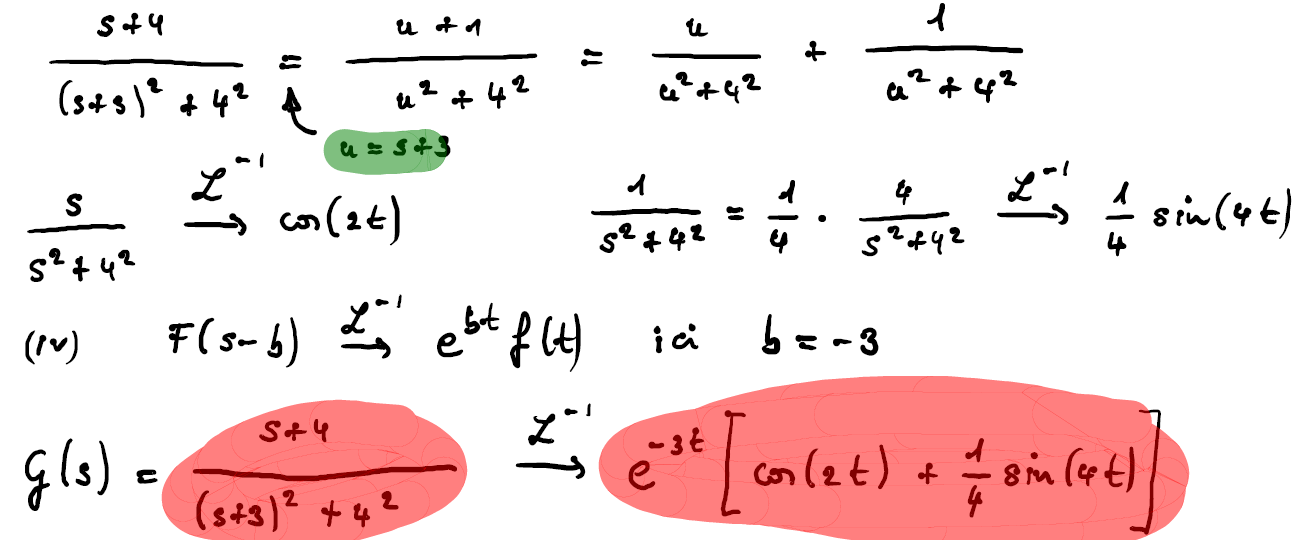 \frac{s+4}{(s+3)^2 + 4^2} = \frac{u+1}{u^2 + 4^2} = \frac{u}{u^2+4^2} + \frac{1}{u^2+4^2}
u = s+3
\frac{s}{s^2+4^2} \xrightarrow{\mathcal{L}^{-1}} cos(2t) \frac{1}{s^2+4^2} = \frac{1}{4} \cdot \frac{4}{s^2+4^2} \xrightarrow{\mathcal{L}^{-1}} \frac{1}{4} sin(4t)
(iv) F(s-b) \xrightarrow{\mathcal{L}^{-1}} e^{bt} f(t) ici b = -3
G(s) = \frac{s+4}{(s+3)^2 + 4^2} \xrightarrow{\mathcal{L}^{-1}} e^{-3t} [ cos(2t) + \frac{1}{4} sin(4t) ]